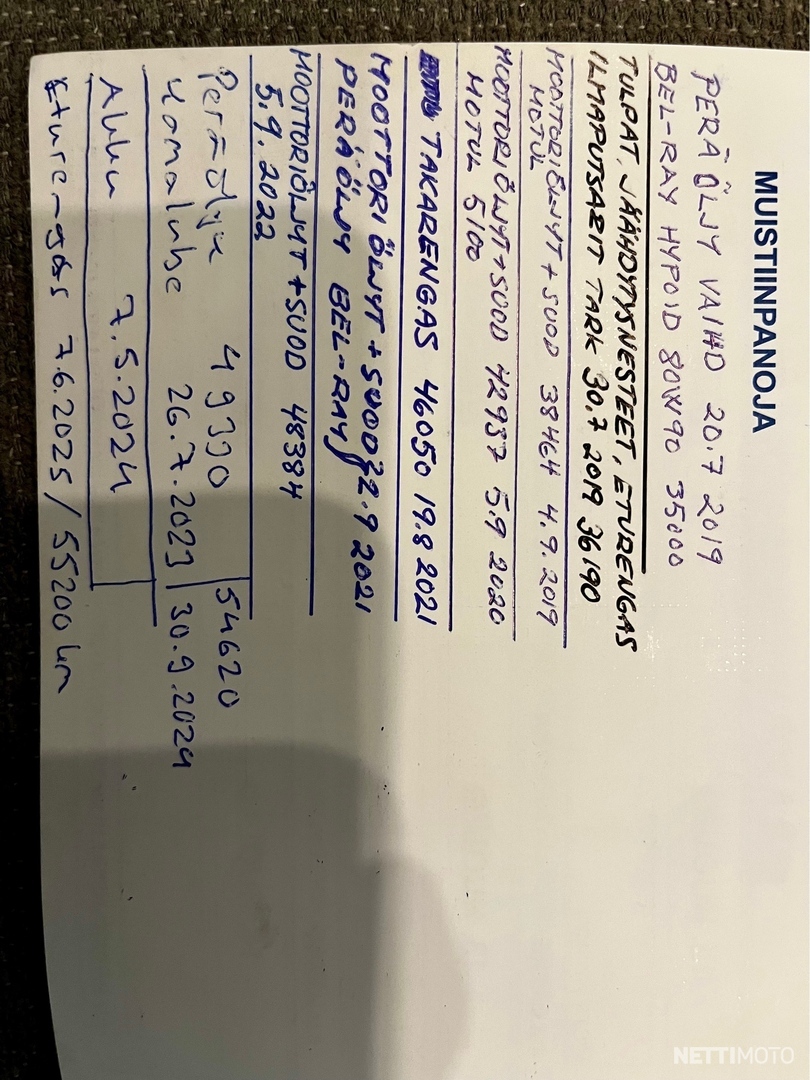 MUISTIINPANOJA
PERÄ ÖLJY VAIHD 20.7 2019
BEL-RAY HYPOID 80W90 35000
TULPAT, JÄÄHDYTYSNESTEET, ETURENGAS
ILMAPUTSARIT TARK 30.7 2019 36190
MOOTTORIÖLJYT + SUOD 38464 4.9.2019
MOTUL
MOOTTORIÖLJYT + SUOD 42937 5.9 2020
MOTUL 5100
TAKARENGAS 46050 19.8 2021
MOOTTORI ÖLJYT + SUOD 22.9 2021
PERÄÖLJY BEL-RAY
MOOTTORIÖLJYT + SUOD 48384
5.9.2022
Peräöljy 49390 54620
Yamalube 26.7.2023 30.9.2024
Akku 7.5.2024
Eturengas 7.6.2025 / 55200 km
NETTIMOTO